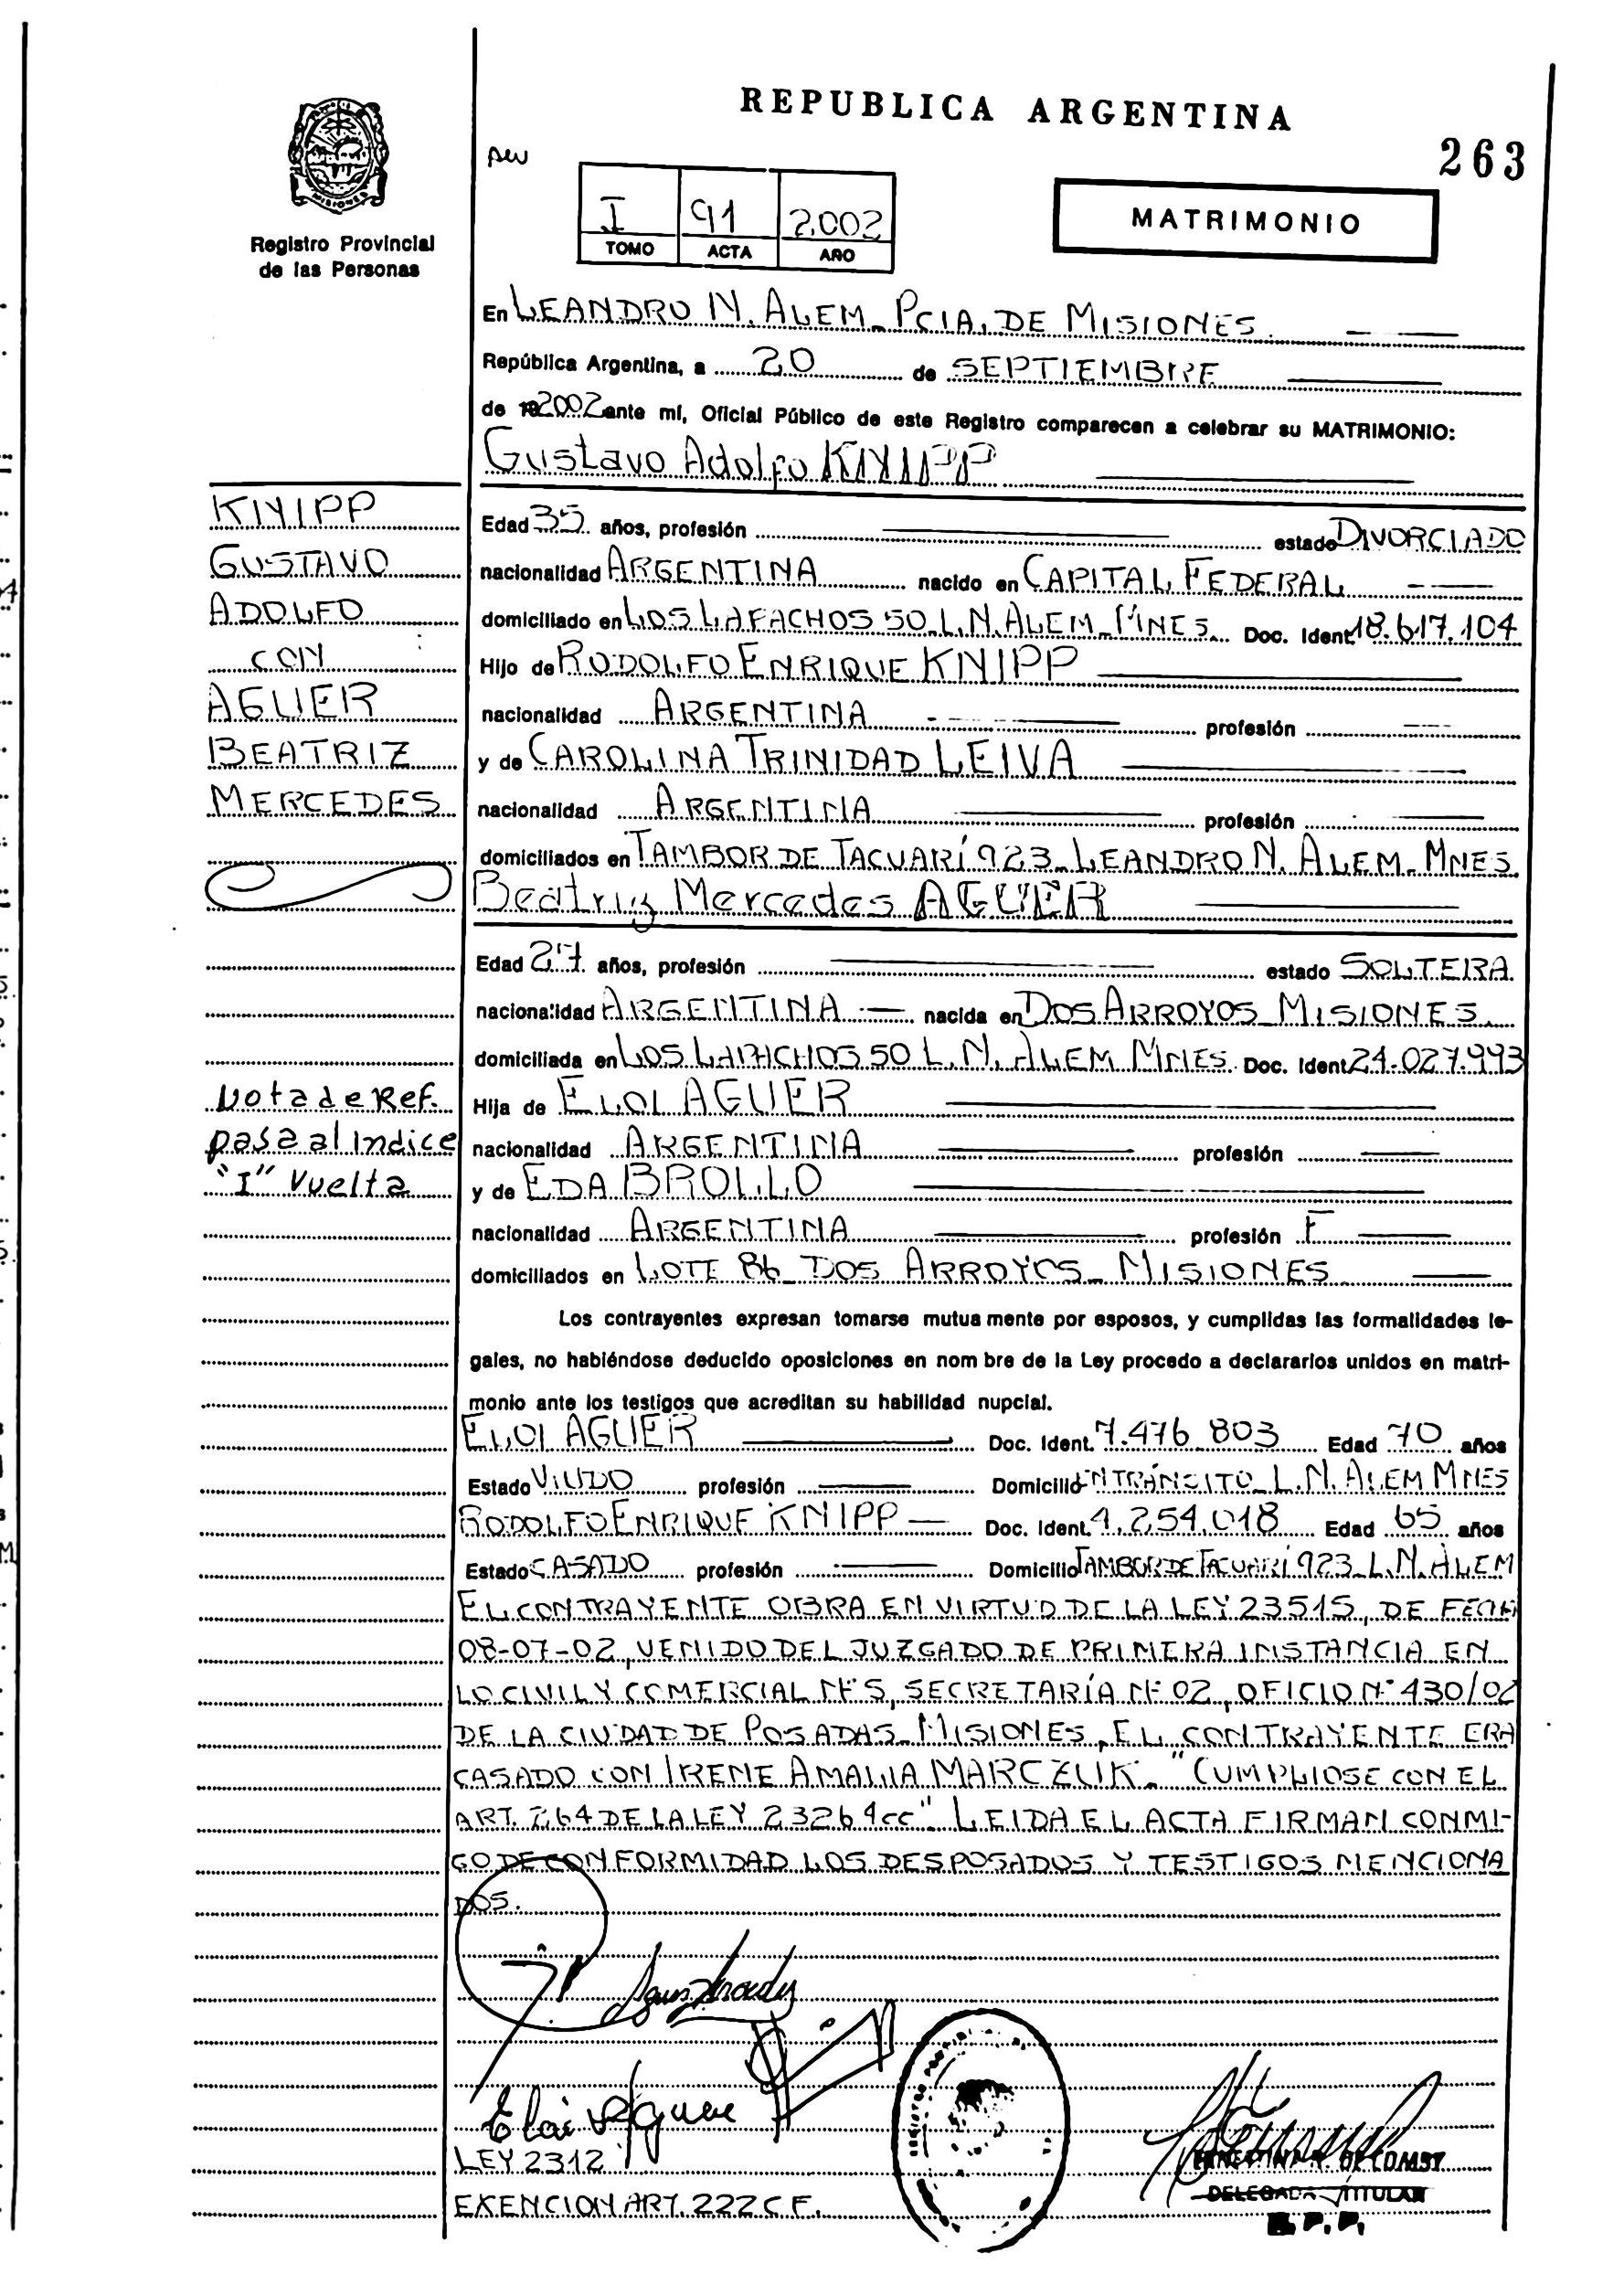 REPUBLICA ARGENTINA
263
MISIONES
Registro Provincial
de las Personas
I 91 2.002
TOMO ACTA AÑO
MATRIMONIO
En LEANDRO N. ALEM_ PCIA. DE MISIONES
República Argentina, a 20 de SEPTIEMBRE
de 2002 ante mí, Oficial Público de este Registro comparecen a celebrar su MATRIMONIO:
Gustavo Adolfo KNIPP
KNIPP
GUSTAVO
ADOLFO
CON
AGUER
BEATRIZ
MERCEDES
Edad 35 años, profesión estado DIVORCIADO
nacionalidad ARGENTINA nacido en CAPITAL FEDERAL
domiciliado en LOS LAPACHOS 50_L.N.ALEM_MNES_ Doc. Ident. 18.617.104
Hijo de RODOLFO ENRIQUE KNIPP
nacionalidad ARGENTINA profesión
y de CAROLINA TRINIDAD LEIVA
nacionalidad ARGENTINA profesión
domiciliados en TAMBOR DE TACUARÍ 923_LEANDRO N. ALEM_MNES.
Beatriz Mercedes AGUER
Edad 27 años, profesión estado SOLTERA
nacionalidad ARGENTINA nacida en DOS ARROYOS_MISIONES
domiciliada en LOS LAPACHOS 50 L.N. ALEM MNES. Doc. Ident. 24.027.993
Nota de Ref.
pasa al indice
"I" Vuelta
Hija de ELOI AGUER
nacionalidad ARGENTINA profesión
y de EDA BROLLO
nacionalidad ARGENTINA profesión F
domiciliados en LOTE 86_DOS ARROYOS_MISIONES
Los contrayentes expresan tomarse mutua mente por esposos, y cumplidas las formalidades le-
gales, no habiéndose deducido oposiciones en nom bre de la Ley procedo a declararlos unidos en matri-
monio ante los testigos que acreditan su habilidad nupcial.
ELOI AGUER Doc. Ident. 7.476.803 Edad 70 años
Estado VIUDO profesión Domicilio EN TRÁNSITO_L.N.ALEM MNES
RODOLFO ENRIQUE KNIPP Doc. Ident. 4.254.018 Edad 65 años
Estado CASADO profesión Domicilio TAMBOR DE TACUARÍ 923_L.N.ALEM
EL CONTRAYENTE OBRA EN VIRTUD DE LA LEY 23515, DE FECHA
08-07-02, VENIDO DEL JUZGADO DE PRIMERA INSTANCIA EN
LO CIVIL Y COMERCIAL Nº 5, SECRETARÍA Nº 02, OFICIO Nº 430/02
DE LA CIUDAD DE POSADAS_MISIONES, EL CONTRAYENTE ERA
CASADO CON IRENE AMALIA MARCZUK_"CUMPLIOSE CON EL
ART. 264 DE LA LEY 23264 cc". LEIDA EL ACTA FIRMAN CONMI-
GO DE CONFORMIDAD LOS DESPOSADOS Y TESTIGOS MENCIONA
DOS.
Eloi Aguer
LEY 2312
EXENCION ART. 222 C.F.
DELEGADA TITULAR
R.P.P.